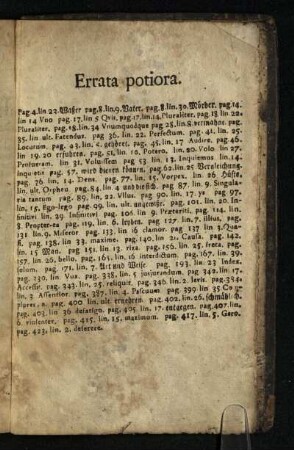 Errata potiora.
Pag.4.lin.22. Waßer pag.8.lin.9. Vater, pag.8.lin.30. Mörder. pag.14.
lin 14 Vno pag. 17. lin 5 Qvis, pag.17. lin.14. Pluraliter. pag.18 lin 22.
Pluraliter. pag.18. lin.34 Vnumquodque pag 25.lin.8. pag.
35. lin ult. Fatendus. pag 36. lin. 22. Perfectum. pag. 41. lin. 25.
Locorum. pag. 43. lin. c. gehöret. pag. 45. lin. 17. Audor. pag. 46.
lin 19. 20 erfuhren. pag. 51. lin. 10. Potero. lin. 20. Volo lin 27.
lin 31. Voluissem pag 53. lin. 13. Inquiemus lin. 14.
Inquietis pag. 57. wird hieren pag. 62. lin. 25 Vergleichung.
pag. 76. lin. 14. Dens. pag. 77. lin. 15. Vorpes. lin. 26.
lin. ult. Orpheu pag. 84. lin 4 pag. 87. lin. 9. Singula-
ria tantum pag. 89. lin. 22. Vilus. pag 90. lin. 17. ya pag. 97.
lin, 15. Ego-lego pag. 99. lin. ult. pag. 101. lin. 20. In-
finitivi lin. 29. Infinitivi pag. 106 lin 9. Præteriti. pag 114. lin.
8. Propter-ea pag. 119. lin. 6. pag. 127. lin. 7. illius, pag.
131 lin. 9. Miseror pag. 133. lin 16 clamor. pag 137 lin 3.
pag. 138. lin 33. maxime. pag. 140. lin 21. Causa. pag. 142.
lin. 15 Man. pag. 151 lin. 13. rixa pag. 156. lin 25. freta, pag.
157. lin. 26. bello, pag. 165. lin, 16 interdictum. pag. 167. lin. 39.
solum. pag. 171. lin. 7. Art und Weise pag. 193. lin. 23 Index.
pag. 130. lin Vox. pag. 338. lin. 5 jusjurandum pag 342. lin 17.
Accessit. pag. 343. lin. 25. reliquit. pag. 346. lin. 2 levis. pag. 354.
lin. 3. Assentior. pag. 387. lin. 4. Pascuum pag. 399. lin 35 Co-
pag. 400 lin. ult. ernehren. pag. 402. lin. 26. schmähl.
pag. 403. lin 36 defatigo. pag. 405 lin. 17. entgegen. pag. 407. lin.
6. violenter. pag. 415. lin. 15. maximum. pag. 417. lin. 5. Gero.
pag. 423. lin. 2. deserere.